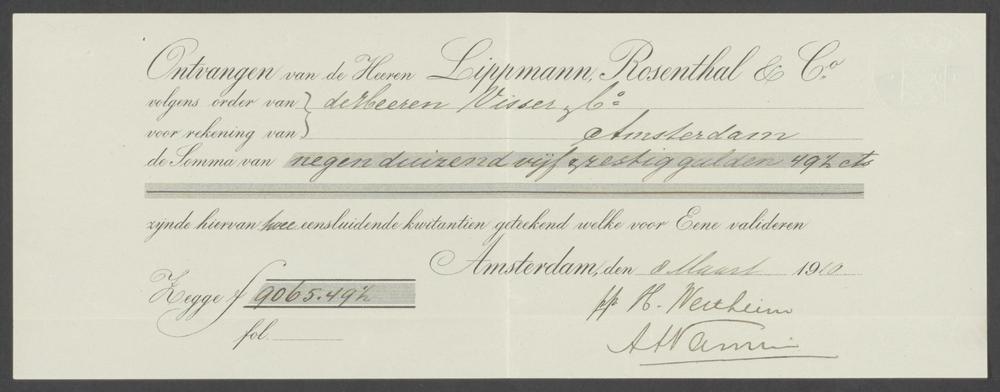 Ontvangen van de Heeren Lippmann, Rosenthal & Co
volgens order van } de Heeren Visser & Co
voor rekening van } Amsterdam
de Somma van negen duizend vijf & zestig gulden 49½ cts
zijnde hiervan twee eensluidende kwitantiën geteekend welke voor Eene valideren
Amsterdam, den 8 Maart 1910
Zegge f 9065.49½
pp H. Wertheim
fol.